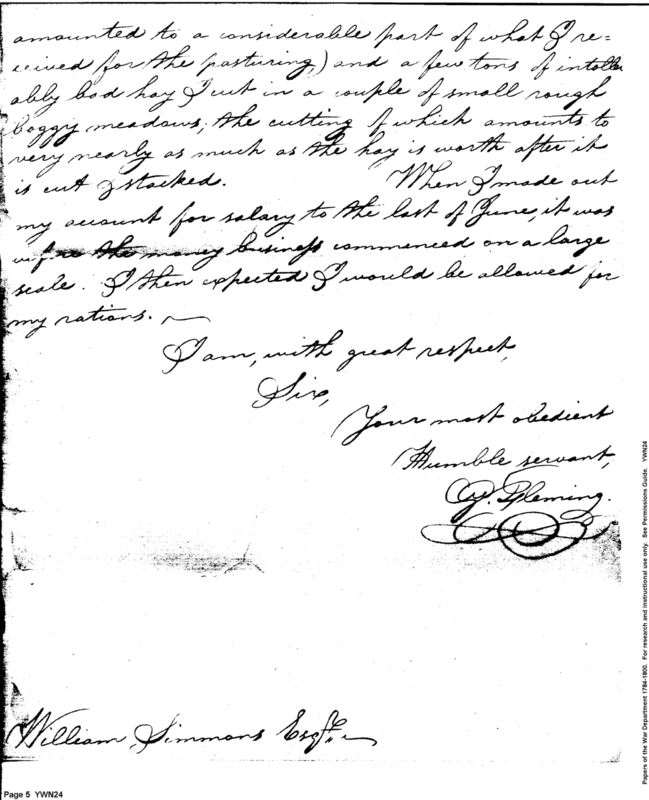 amounted to a considerable part of what I re=
ceived for the pasturing,) and a few tons of intoller
ably bad hay I cut in a couple of small rough
boggy meadows; the cutting of which amounts to
very nearly as much as the hay is worth after it
is cut & stacked. When I made out
my account for salary to the last of June, it was
before the money business commenced on a large
scale. I then expected I would be allowed for
my rations.
I am, with great respect,
Sir,
Your most obedient
Humble servant,
Fleming.
William Simmons Esqr.
Page 5 YWN24
Papers of the War Department 1784-1800. For research and instructional use only. See Permissions Guide. YWN24